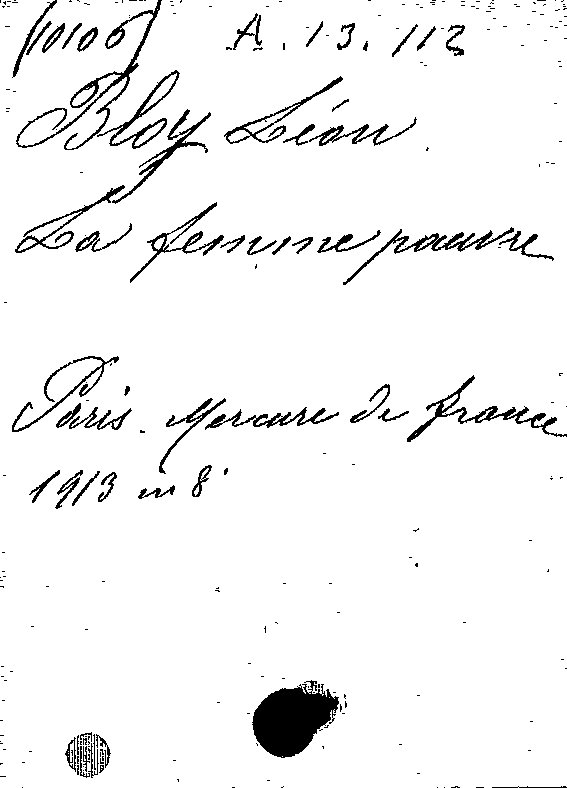 (10106) A. 13. 112
Bloy Léon
La femme pauvre
Paris. Mercure de france
1913 in 8°